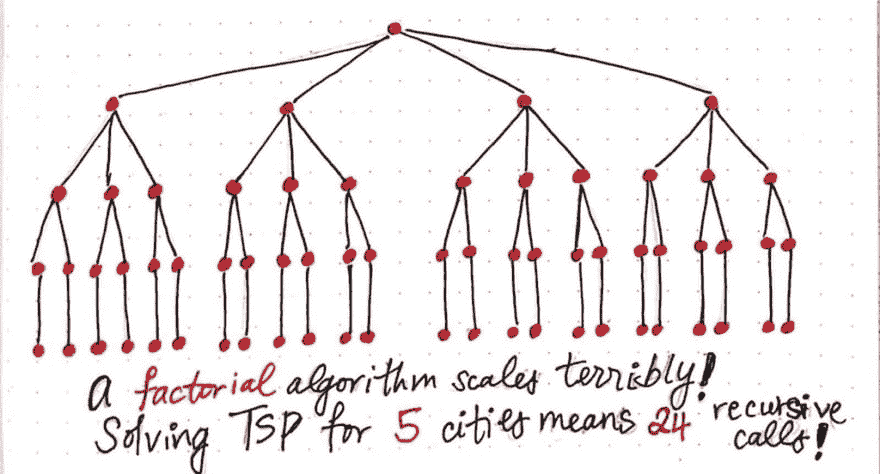 a factorial algorithm scales terribly!
Solving TSP for 5 cities means 24 recursive calls!